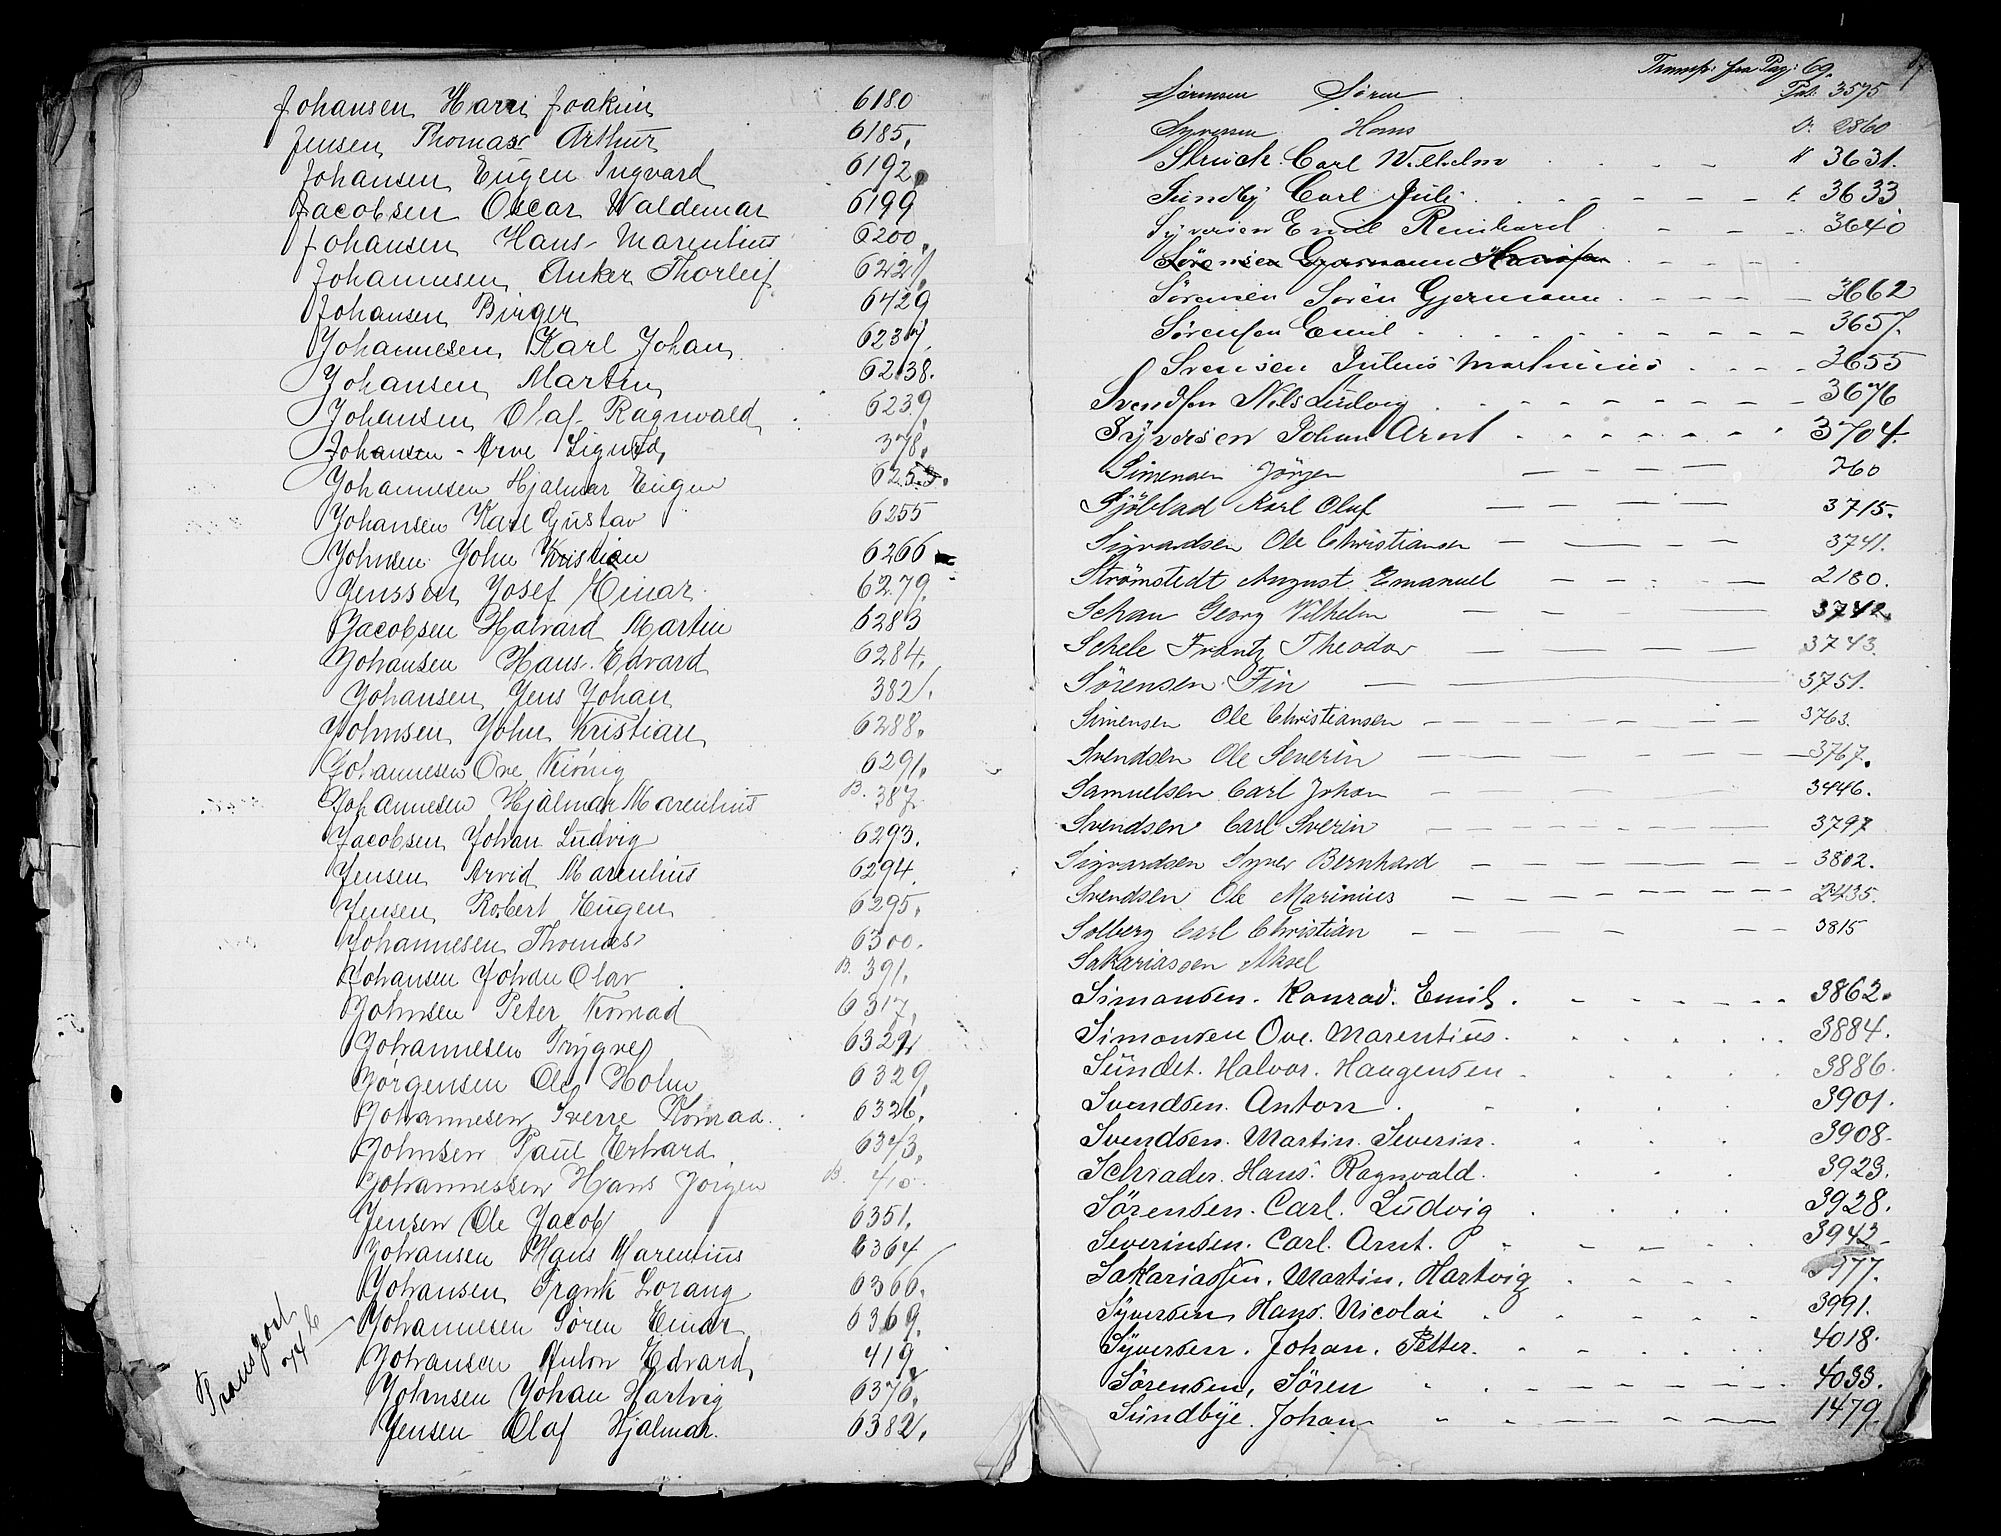 Johansen Harri Joakim 6180
Jensen Thomas Arthur 6185.
Johansen Eugen Ingvard 6192
Jacobsen Oscar Waldemar 6199
Johansen Hans Marentius 6200
Johannesen Anker Thorleif 6221
Johansen Birger 6429
Johannesen Karl Johan 6237
Johansen Martin 6238.
Johansen Olaf Ragnvald 6239
Johansen - Arve Sigurd 378.
Johannesen Hjalmar Eugen
Johansen Karl Gustav 6255
Johnsen John Kristian 6266
Jenssen Josef Einar 6279.
Jacobsen Halvard Martin 6283
Johansen Hans Edvard 6284.
Johansen Jens Johan 382.
Johnsen John Kristian 6288.
Johannesen Ove 6291.
Johannesen Hjalmar Marentius B. 387
Jacobsen Johan Ludvig 6293.
Jensen Arvid Marentius 6294
Jensen Robert Eugen 6295.
Johannesen Thomas 6300.
Johansen Johan Olav B. 391.
Johnsen Peter Konrad 6317.
Johannesen Trygve
Jörgensen Ole Holm 6329
Johannesen Sverre Konrad 6326.
Johnsen Paul Erhard 6343.
Johannessen Hans Jörgen B.
Jensen Ole Jacob 6351.
Johansen Hans Marentius 6364
Johansen Frank Lorang 6366.
Johannesen Sören Einar 6369.
Johansen Anton Edvard 419
Johnsen Johan Hartvig 6376.
Jensen Olaf Hjalmar. 6382.
Transport 74 b
Transp: fra Pag: 69.
Sörensen Sören Pat: 3575
Syversen Hans 2860
Struck Carl Wilhelm 3631.
Sundby Carl Juli 3633
Syversen Emil Reinhard 3640
Sörensen
Sörensen Sören Gjermann 3662
Sörensen Emil 3657.
Svensen Julius Martinius 3655
Svendsen Nils Ludvig 3676
Syversen Johan Arnt 3704.
Simensen Jörgen 760
Sjöblad Karl Oluf 3715.
Sigvardsen Ole Christiansen 3741.
Strömstedt August Emanuel 2180.
Schau Georg Vilhelm 3742.
Schele Frantz Theodor 3743.
Sørensen Fin 3751.
Simensen Ole Christiansen 3763.
Svendsen Ole Severin 3767.
Samuelsen Carl Johan 3446.
Svendsen Carl Sverin 3797
Sigvardsen Syver Bernhard 3802.
Svendsen Ole Marinius
Solberg Carl Christian 3815
Sakariassen Aksel
Simonsen. Konrad. Emil. 3862.
Simonsen Ove. Marentius. 3884.
Sundet. Halvor. Haugensen 3886.
Svendsen. Anton. 3901.
Svendsen. Martin. Severin. 3908.
Schrader. Hans. Ragnvald. 3923.
Sörensen. Carl. Ludvig 3928.
Severinsen. Carl. Arnt. P 3942
Sakariassen. Martin. Hartvig
Syversen. Hans. Nicolai 3991.
Syversen. Johan. Petter. 4018.
Sörensen, Sören 4033.
Sundbye. Johan 1479